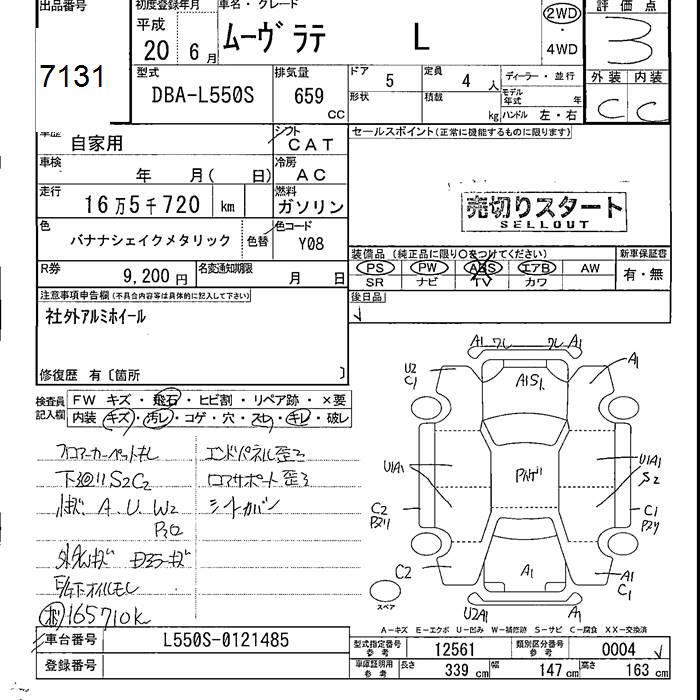 出品番号 初度登録年月 車名・グレード 2WD 評価点
7131 平成 20 6月 ムーヴラテ L ・ 4WD 3
型式 DBA-L550S 排気量 659 CC ドア 5 定員 4人 ディーラー・並行 外装 内装
形状 積載 kg モデル年式 年 ハンドル 左・右 C C
車歴 自家用 シフト CAT セールスポイント(正常に機能するものに限ります)
車検 年 月( 日) 冷房 AC
走行 16万5千720 km 燃料 ガソリン 売切りスタート
SELLOUT
色 バナナシェイクメタリック 色替 色コード Y08
装備品 (純正品に限り○をつけてください) 新車保証書
R券 9,200円 名変通知期限 月 日 PS PW ABS エアB AW 有・無
SR ナビ TV カワ
注意事項申告欄(不具合内容等は具体的に記入して下さい) 後日品
社外アルミホイール
修復歴 有〔箇所 〕
検査員 FW キズ・飛石・ヒビ割・リペア跡・×要
記入欄 内装・キズ・汚レ・コゲ・穴・スレ・キレ・破レ
フロアーカーペットナシ エンドパネル歪ミ
下廻リS2C2 ロアサポート歪ミ
小キズ A U W2 シートカバー
P2
165710K
A1 ワレ ワレ A1
U2 C1 A1S1 A1
U1A1 U1A1 S2
C2 P2ワリ C1 P2ワリ
C2 A1 A1 C1
スペア U2A1 A1
A−キズ E−エクボ U−凹み W−補修跡 S−サビ C−腐食 XX−交換済
車台番号 L550S-0121485 型式指定番号 参考 12561 類別区分番号 参考 0004
登録番号 車庫証明用 参考 長さ 339 cm 幅 147 cm 高さ 163 cm